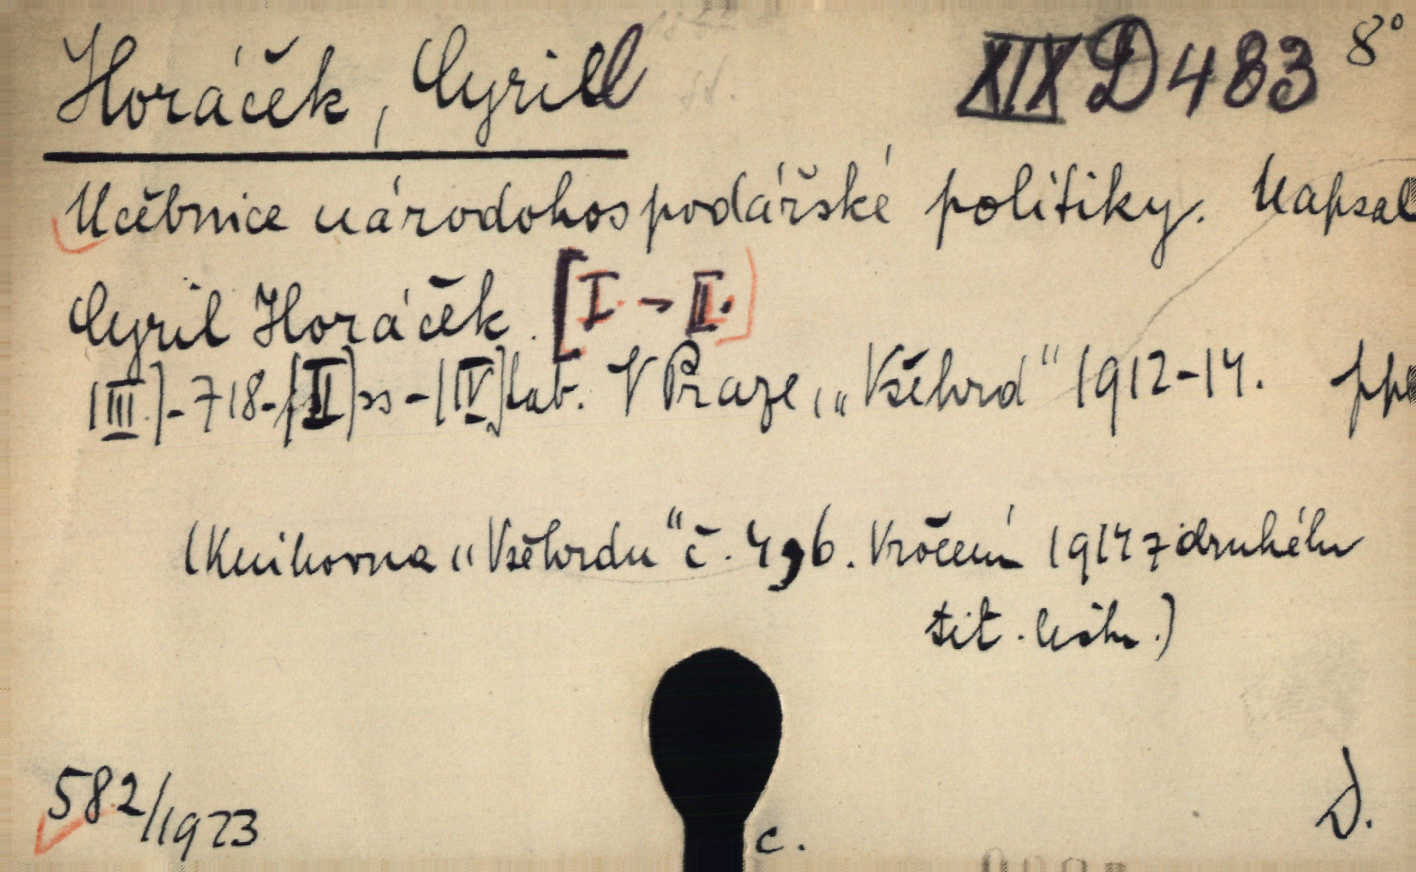 Horáček, Cyrill
XIX D 483 8°
Učebnice národohospodářské politiky. Napsal
Cyril Horáček. [I. - II.]
[III.]-718-[II]ss-[IV]tab. V Praze, „Všehrd“ 1912-14. pp
(Knihovna „Všehrdu“ č. 4, 6. Vročení 1914 z druhého
tit. listu.)
582/1923
c.
D.